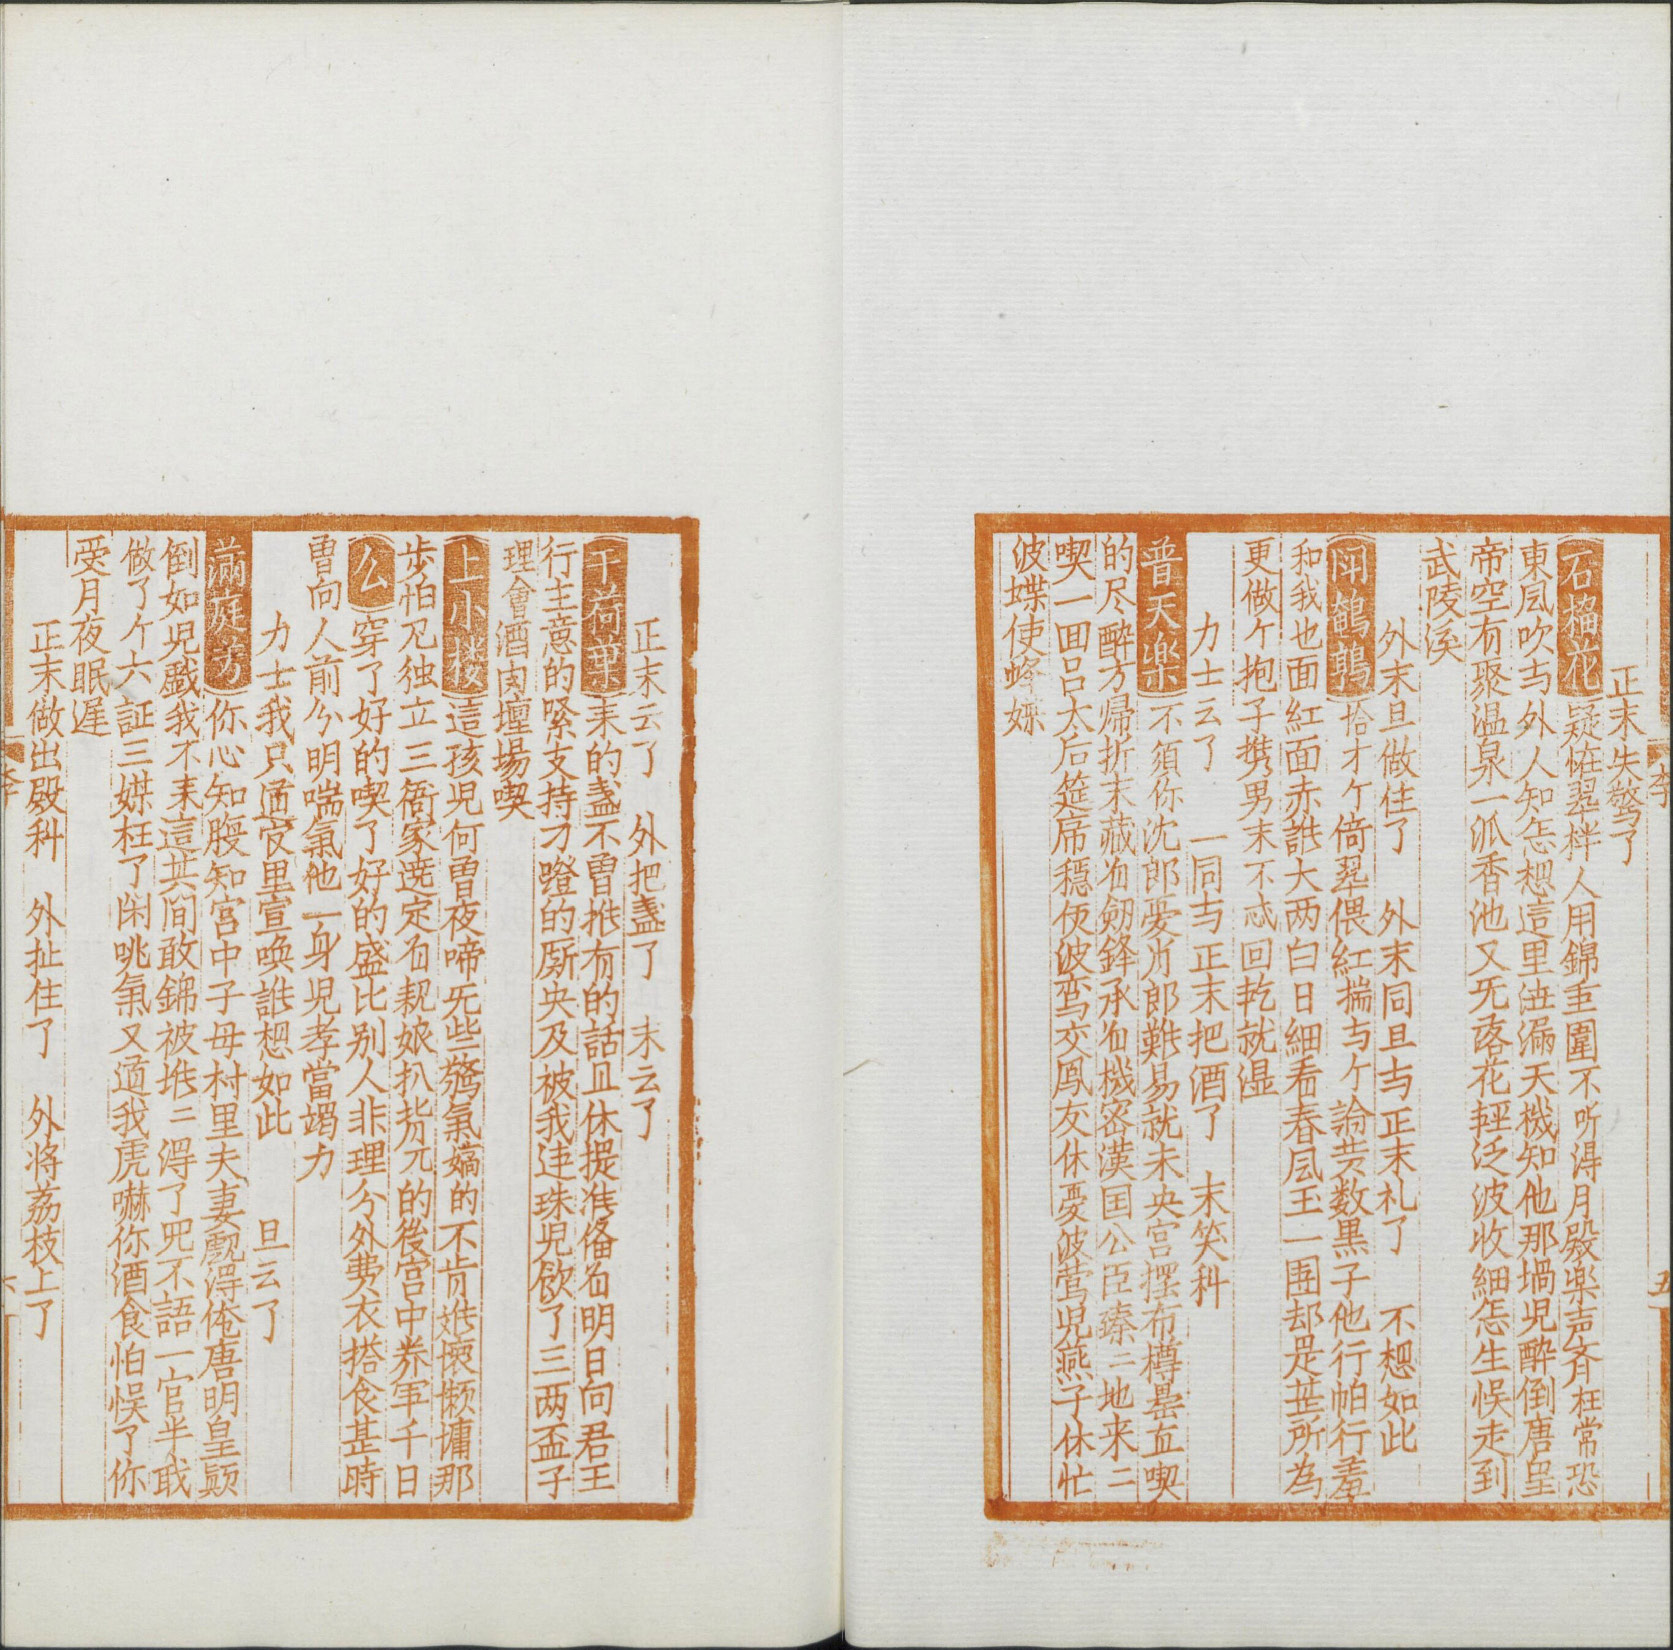 正末失驚了
石榴花 疑恠翠柈人用錦重圍不听淂月殿楽声斉枉常恐
東風吹与外人知怎想這里泄漏天機知他那堝児醉倒唐皇
帝空有聚温泉一派香池又无落花軽泛波收細怎生悞走到
武陵溪
外末旦做住了 外末同旦与正末礼了 不想如此
闘鵪鶉 恰才个倚翠偎紅揣与个論黄数黒子他行怕行羞
和我也面紅面赤誰大两白日細看春風玉一囲却是甚所為
更做个抱子携男末不忒回乾就湿
力士云了 一同与正末把酒了 末笑科
普天樂 不須你沈郎憂肖郎難易就未央宫摆布樽罍直喫
的尽醉方帰折末藏着剱鋒承着機密漢国公臣臻二地来二
喫一囬吕太后筵席穏便波鸾交鳳友休憂波莺児燕子休忙
波蝶使蜂媒
李 五
正末云了 外把盞了 末云了
干荷葉 末的盞不曽推有的話且休提准俻着明日向君王
行主意的紧支持刁蹬的厮央及被我连珠児飲了三两盃子
理會酒肉壇場喫
上小楼 這孩児何曽夜啼无些驚氣嫡的不肯堆壊懒慵那
歩怕兀独立三衙家選定着親娘扒背兀的後宫中养军千日
幺 穿了好的喫了好的盛比别人非理分外费衣搭食甚時
曽向人前分明喘氣他一身児孝當竭力
力士我只道官里宣唤誰想如此 旦云了
满庭芳 你心知腹知宫中子母村里夫妻覷淂俺唐明皇颠
倒如児戯我不来這其間敢錦被堆二淂了咒不語一官半职
做了个六証三媒枉了闲咷氣又道我虎嚇你酒食怕悞了你
受月夜眠遅
正末做出殿科 外扯住了 外将荔枝上了
李 六